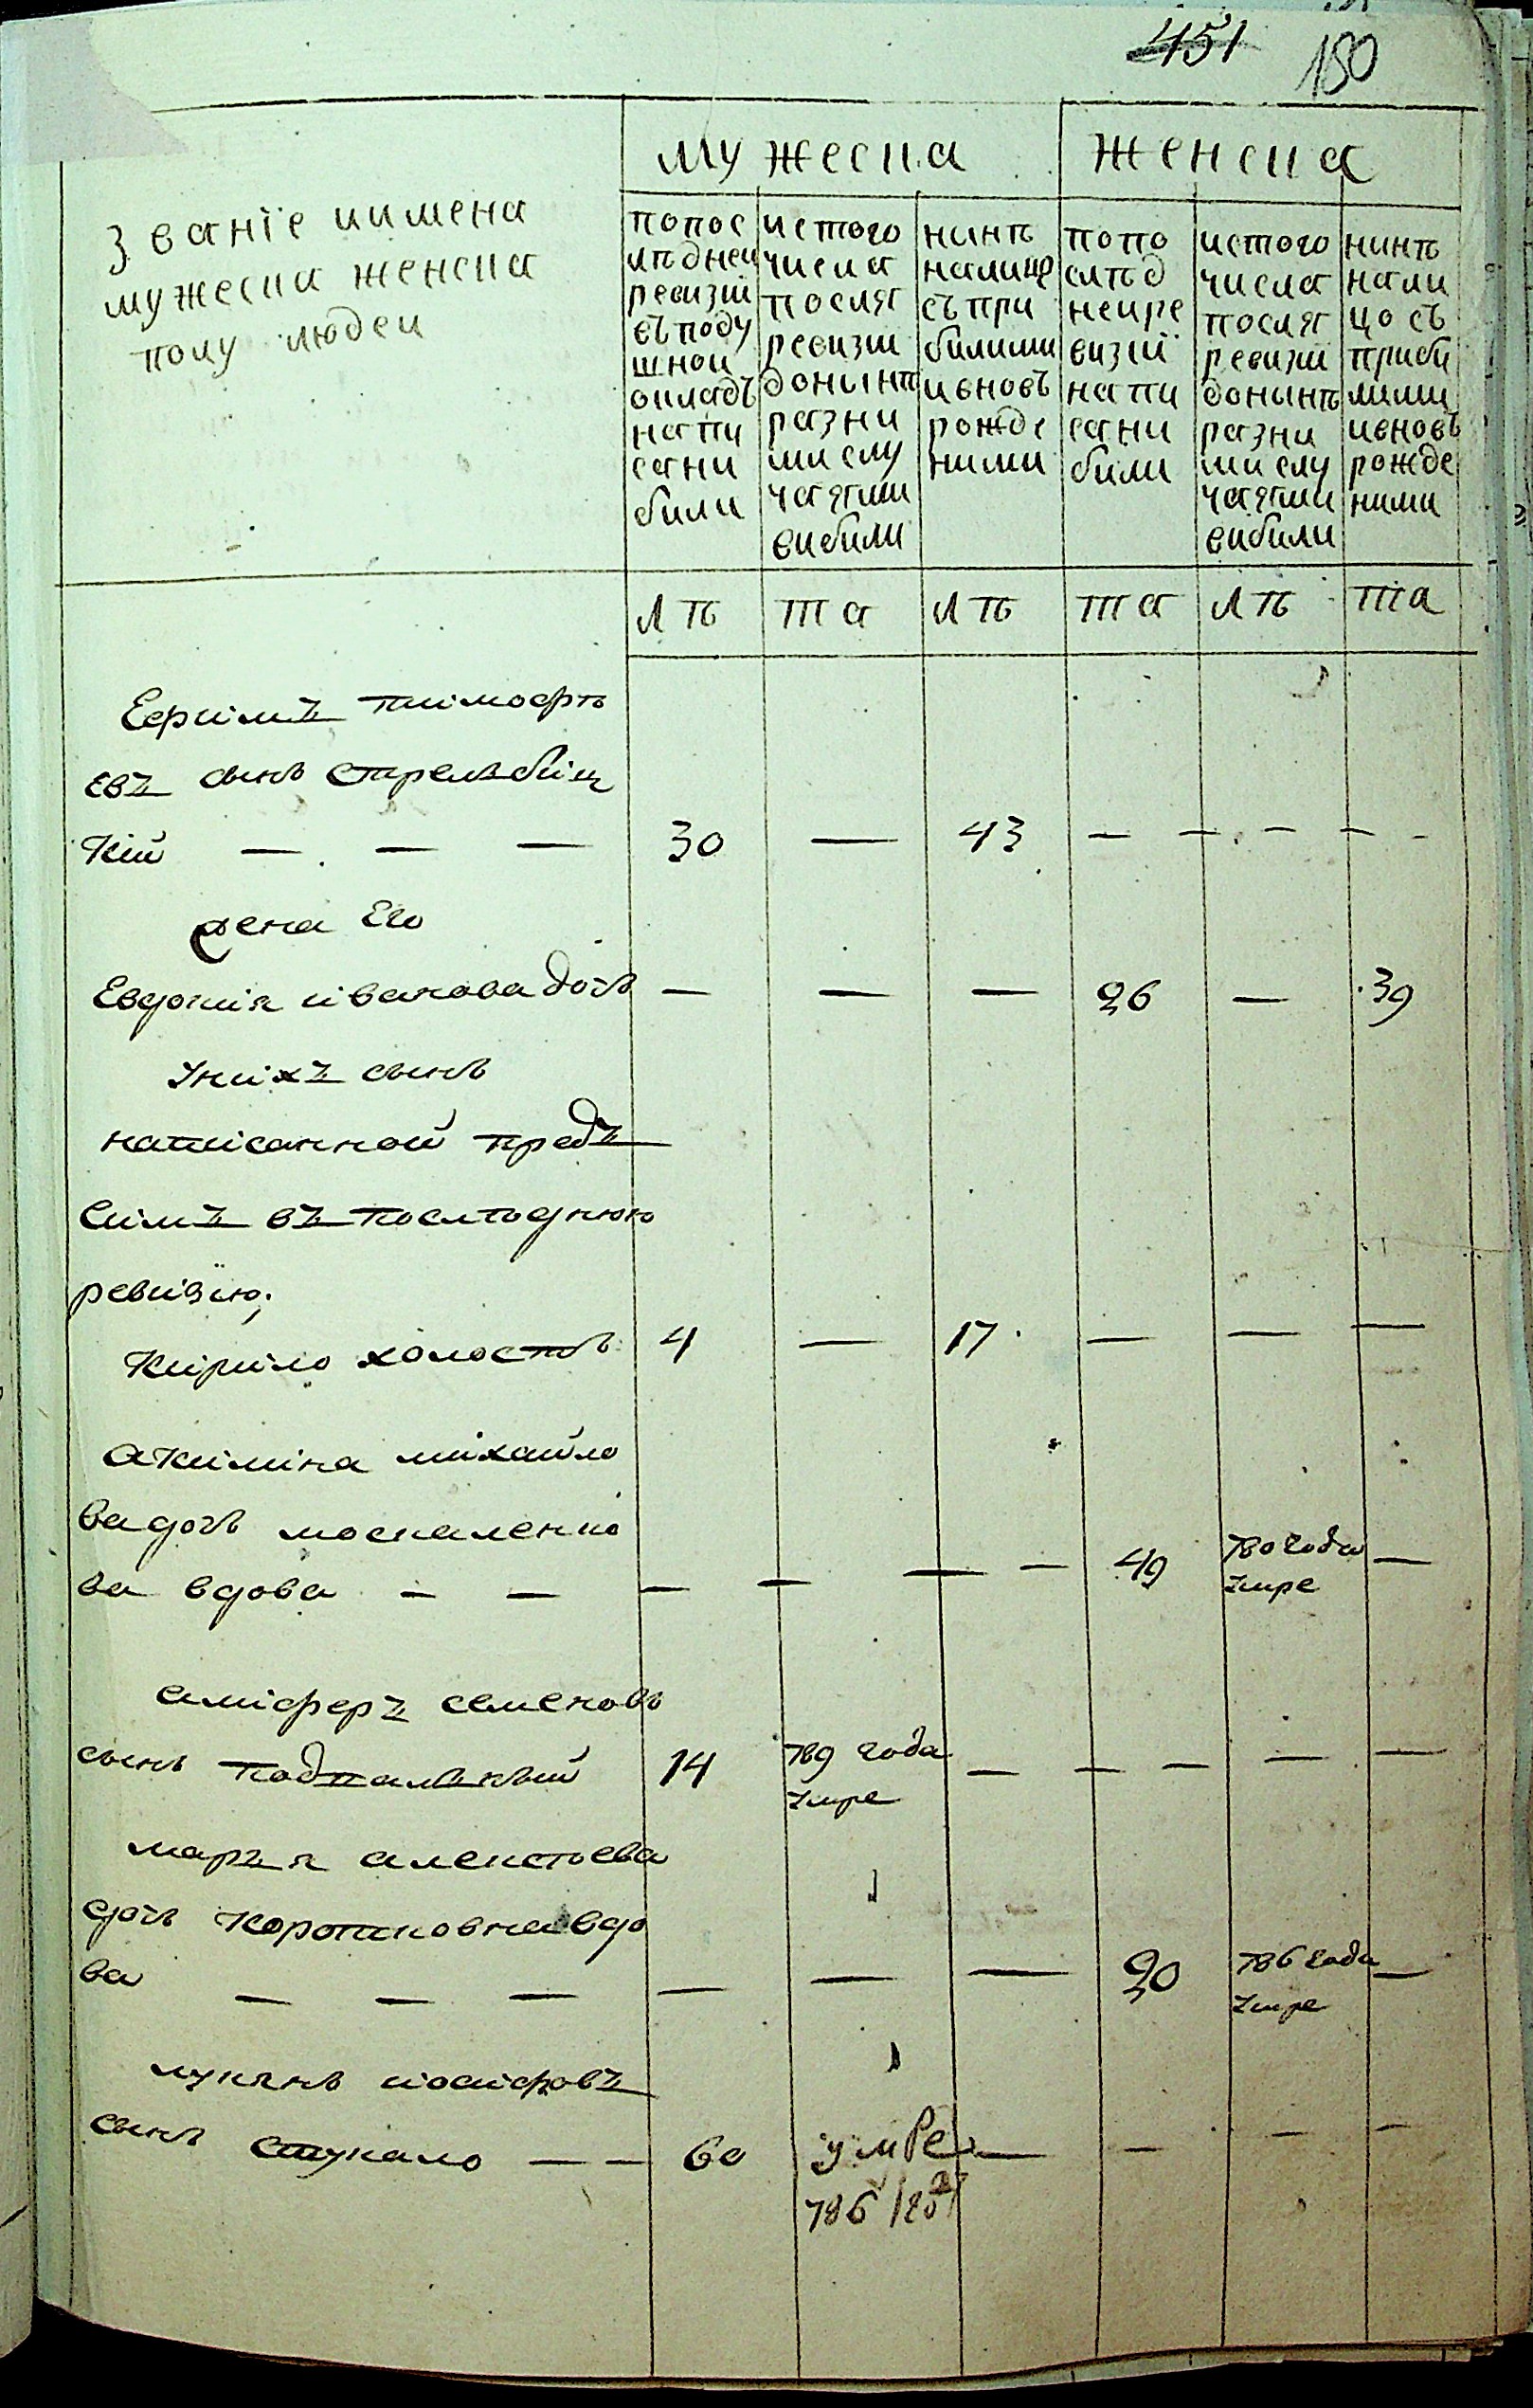 451 180
мужеска женска
Званїе иимена
мужеска женска
полу людеи
попос
лѣднеи
ревизїи
въподу
шнои
окладъ
напи
сани
били
истого
числа
послѣ
ревизїи
донынѣ
разни
ми слу
чаями
вибили
нинѣ
налице
съпри
билими
ивновъ
рожде
ними
попо
слѣд
неире
визїї
напи
сани
били
истого
числа
послѣ
ревизїи
донынѣ
разни
ми слу
чаями
вибили
нинѣ
нали
цо съ
приби
лими
ивновъ
рожде
ними
лѣ та лѣ та лѣ та
Ефримъ тимофѣ
евъ сынъ стрелъбиц
кїй — — — 30 — 43 — — — — -
жена Его
Евдокия иванова дочь — — — 26 — 39
Унихъ сынъ
написанной предъ
симъ въ послѣднюю
ревизию;
Кирило холостъ 4 — 17 — — —
Акимина михайло
ва дочь москаленко
ва вдова — — — — — — 49 780 года —
умре
алиферъ семеновъ
сынъ подпалъкый 14 789 года — — — — —
умре
маръя алексѣева
дочь Коротковна вдо
ва — — — — — — 20 786 года —
умре
лукянъ иосифовъ
сынъ стукало — — 60 умре — — — —
786 год